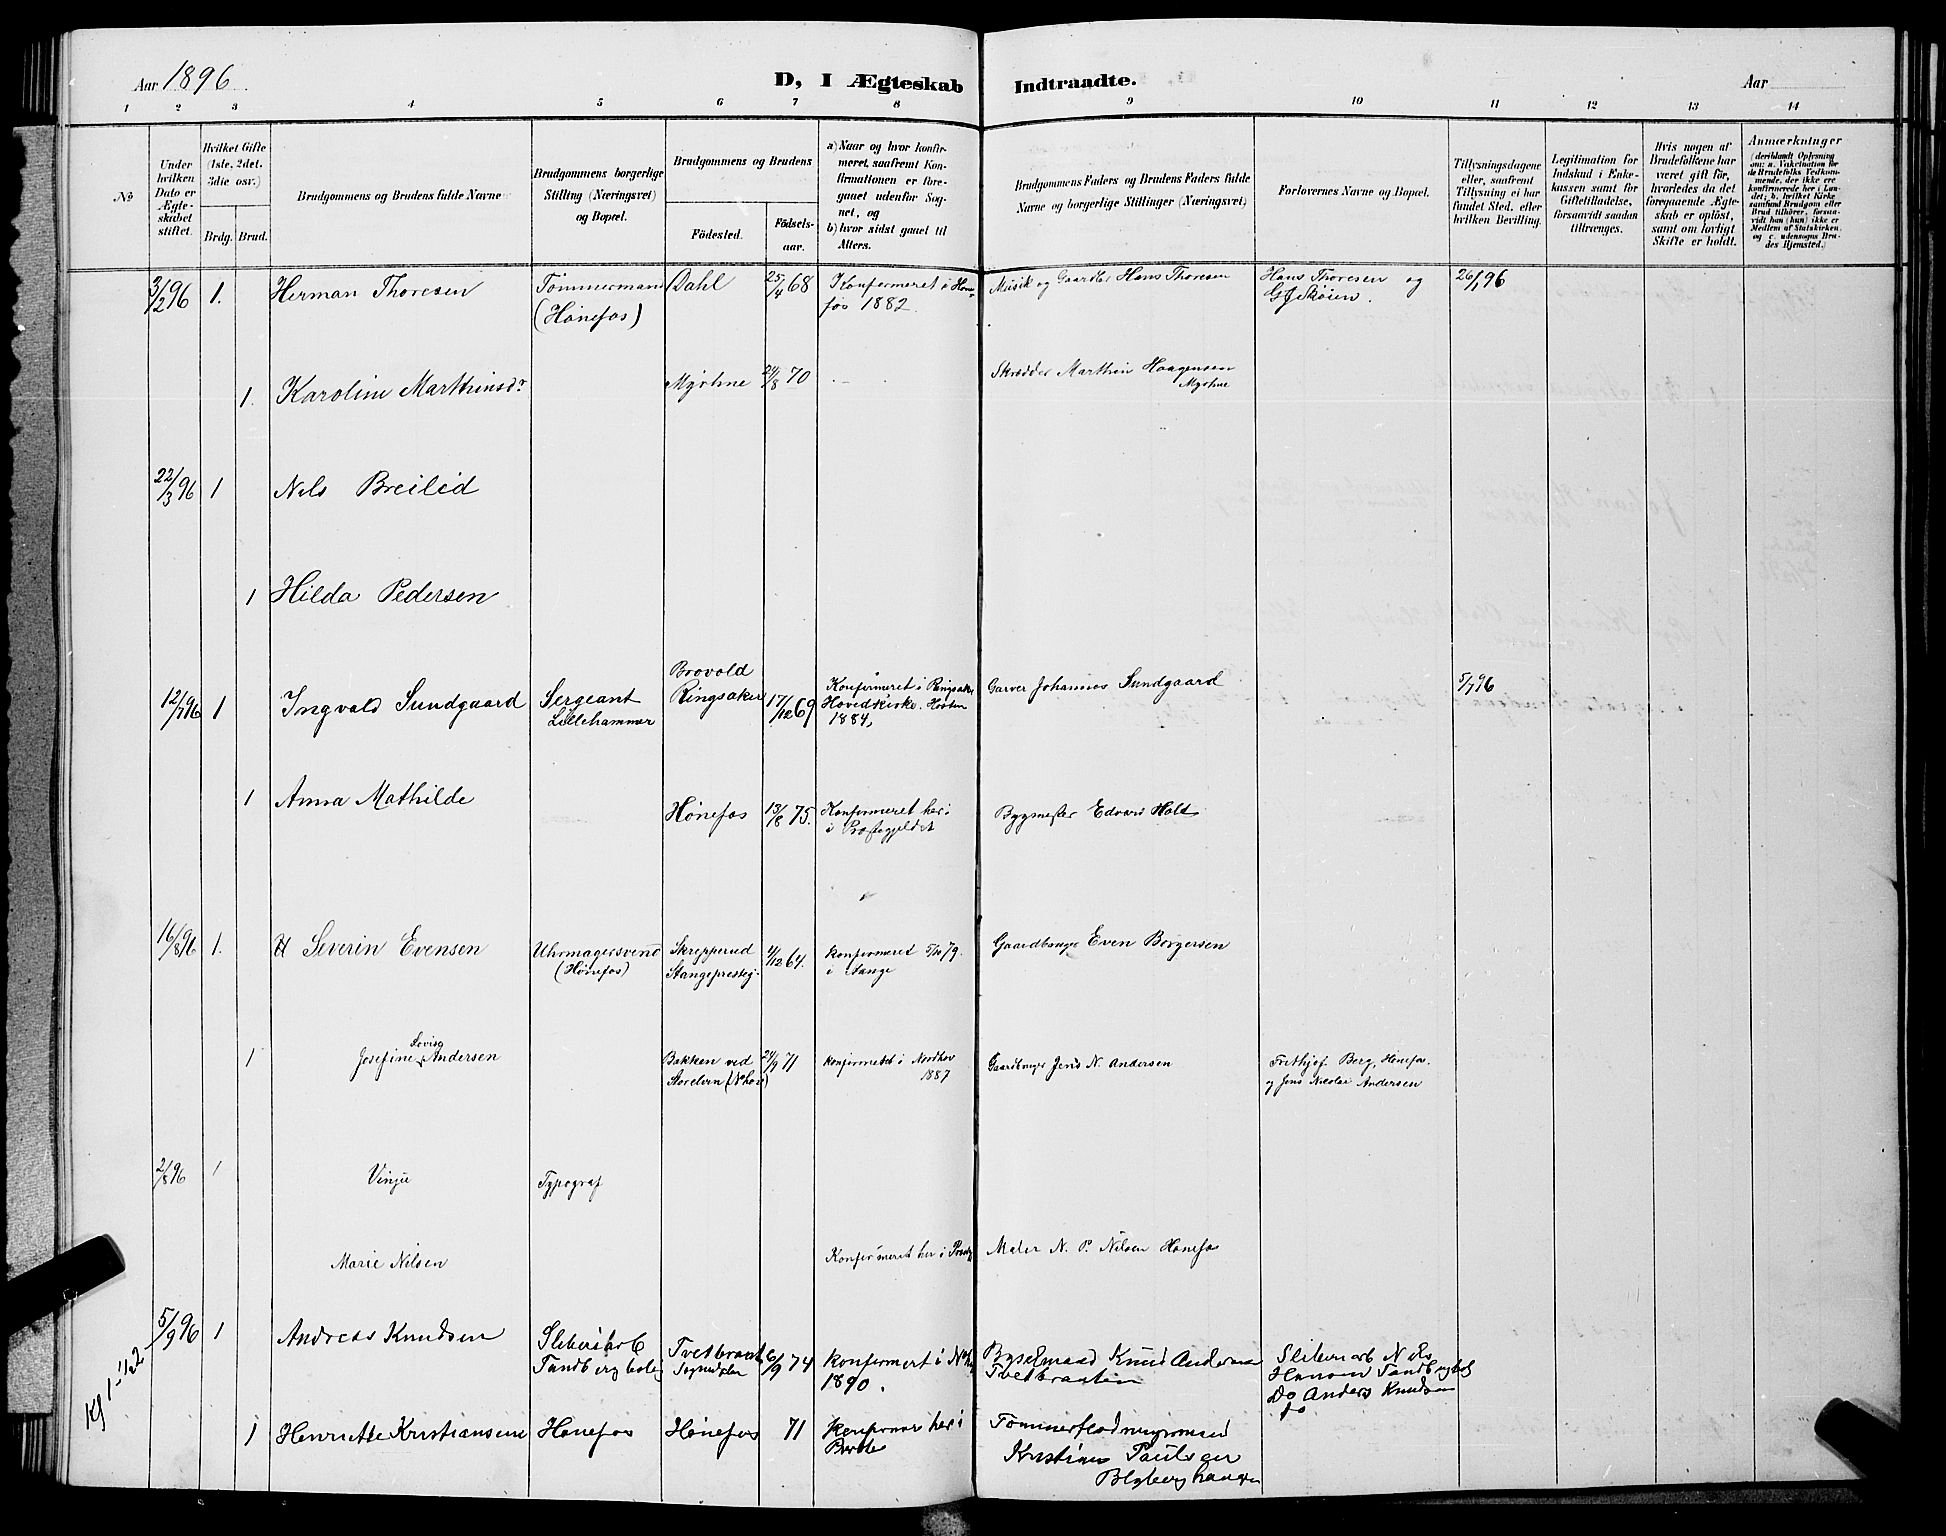 Aar 1896.
D, I Ægteskab Indtraadte.
Aar
1 2 3 4 5 6 7 8 9 10 11 12 13 14
No
Under hvilken Dato er Ægteskabet stiftet.
Hvilket Gifte (1ste, 2det, 3die osv.)
Brdg. Brud.
Brudgommens og Brudens fulde Navne
Brudgommens borgerlige Stilling (Næringsvei) og Bopæl.
Brudgommens og Brudens
Fødested.
Fødselsaar.
a) Naar og hvor konfirmeret, saafremt Konfirmationen er foregaaet udenfor Sognet, og
b) hvor sidst gaaet til Alters.
Brudgommens Faders og Brudens Faders fulde Navne og borgerlige Stillinger (Næringsvei)
Forlovernes Navne og Bopæl.
Tillysningsdagene eller, saafremt Tillysning ei har fundet Sted, efter hvilken Bevilling.
Legitimation for Indskud i Enkekassen samt for Giftetilladelse, forsaavidt saadan tiltrænges.
Hvis nogen af Brudefolkene har været gift før, hvorledes da det foregaaende Ægteskab er opløst, samt om lovligt Skifte er holdt.
Anmærkninger
(deriblandt Oplysning om: a. Vakcination for de Brudefolks Vedkommende, der ikke ere konfirmerede her i Landet; b. hvilket Kirkesamfund Brudgom eller Brud tilhører, forsaavidt han (hun) ikke er Medlem af Statskirken, og c. udensogns Brudes Hjemsted.)
3/2 96 1. Herman Thoresen Tømmermand Dahl 25/4 68 Konfirmeret i Høne- Musik og Gaardbr Hans Thoresen Hans Thoresen og 26/1 96
(Hønefos) fos 1882. Skøien.
1. Karoline Marthinsdr Myhrne 24/8 70 Skrædder Marthin Haagensen
Myhrne
22/3 96 1 Nils Breilid
1 Hilda Pedersen
Brovold
12/7 96 1 Ingvald Sundgaard Sergeant Ringsaker 17/12 69 Konfirmeret i Ringsaker Garver Johannes Sundgaard 5/7 96
Lillehammer Hovedkirke. Høsten
1884,
1 Anna Mathilde Hønefos 13/8 75. Konfirmeret her i Bygmester Edvard Holt
i Præstegjeldet
16/8 96 1. H Severin Evensen Uhrmagersvend Skrepperud 4/12 64. konfirmeret 5/10 79. Gaardbruger Even Borgersen
(Hønefos) Stangeprestegj. i Stange
Lovise
1 Josefine Andersen Bakken ved 24/9 71 konfirmeret i Nordhov Gaardbruger Jens N. Andersen Frithjof Berg, Hønefos.
Storelven (Nhov) 1887 og Jens Nicolai Andersen
2/8 96 1 Vinju Typograf
Marie Nilsen Konfirmeret her i Maler N. P. Nilsen Hønefos
Kf 1-1/2
5/9 96 1 Andreas Knudsen Tvetbraat 6/9 74 konfirmert i Knud Andersen Nils
Tandberg Sognedalen 1890. Tvetbraaten Hansen
Do Anders Knudsen
do
1 Henriette Kristiansen Hønefos Hønefos 71 her i
Kristian Paulsen